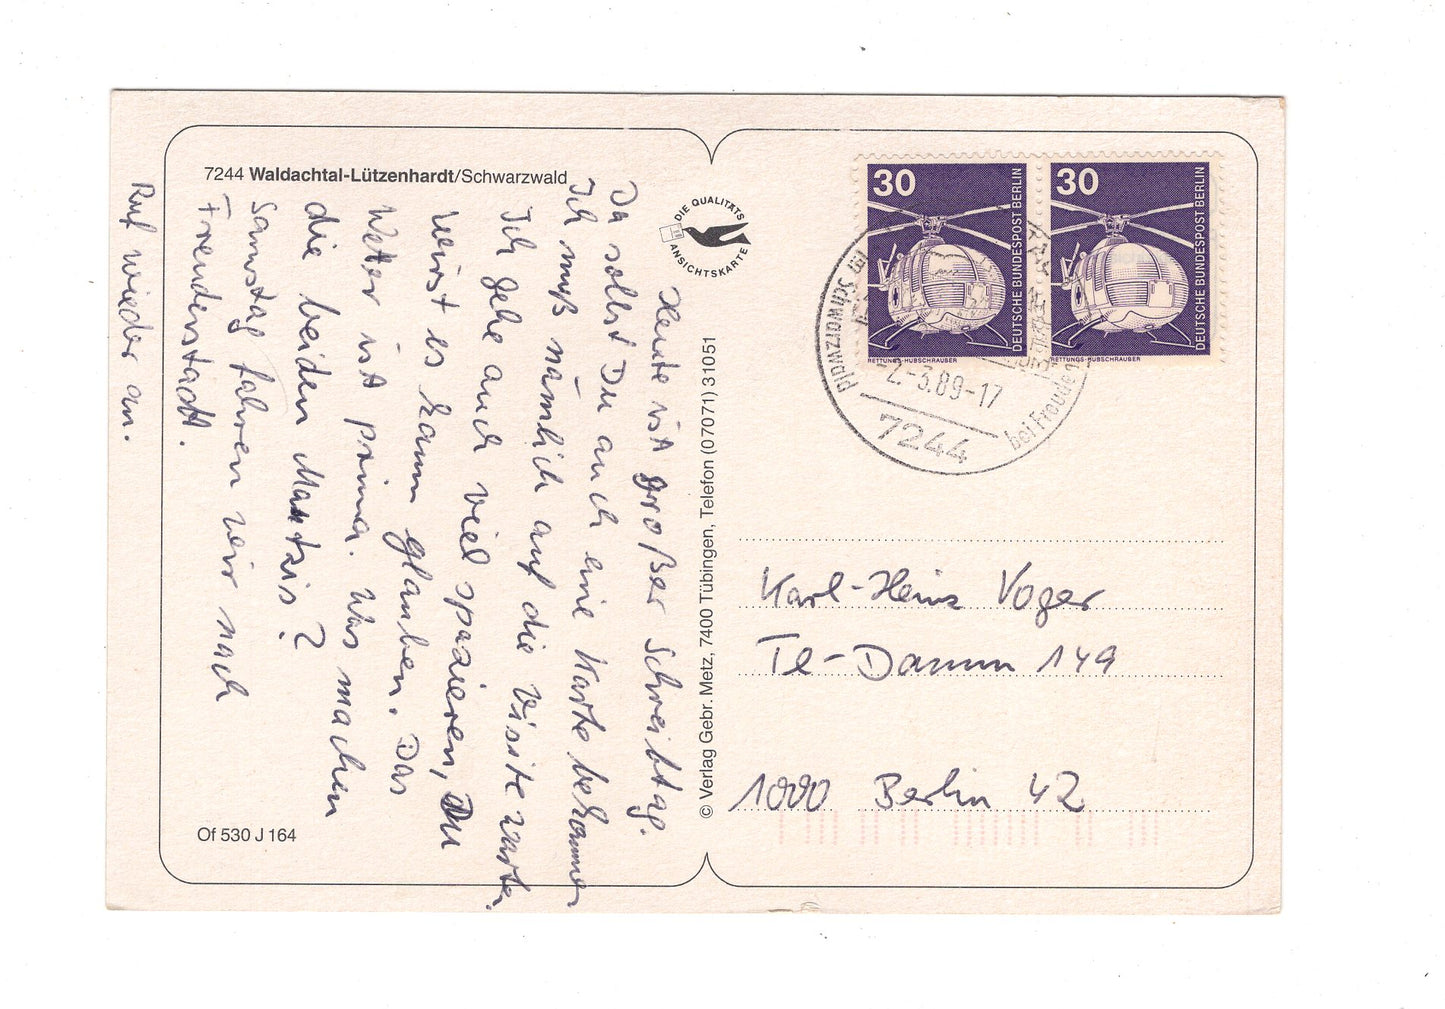 7244 Waldachtal-Lützenhardt/Schwarzwald
Heute ist großer Schreibtag.
Du sollst Du auch eine Karte bekommen
Ich muß nämlich auf die Visite warten.
Ich gehe auch viel spazieren, Du
wirst es kaum glauben. Das
Wetter ist prima. Was machen
die beiden Mautzis?
Samstag fahren wir nach
Freudenstadt.
Ruf wieder an.
Of 530 J 164
DIE QUALITÄTS
ANSICHTSKARTE
© Verlag Gebr. Metz, 7400 Tübingen, Telefon (07071) 31051
30
DEUTSCHE BUNDESPOST BERLIN
RETTUNGS-HUBSCHRAUBER
30
DEUTSCHE BUNDESPOST BERLIN
RETTUNGS-HUBSCHRAUBER
im Schwarzwald
2.-3.89-17
7244
bei Freude
Karl-Heinz Voger
Te-Damm 149
1000 Berlin 42